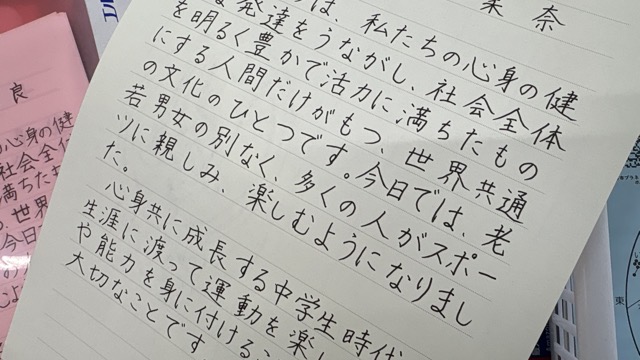 果奈
は、私たちの心身の健
な発達をうながし、社会全体
を明るく豊かで活力に満ちたもの
にする人間だけがもつ、世界共通
の文化のひとつです。今日では、老
若男女の別なく、多くの人がスポー
ツに親しみ、楽しむようになりまし
た。
心身共に成長する中学生時代
生涯に渡って運動を楽し
や能力を身に付ける
大切なことです
良
の心身の健
社会全
満ちた
、世界
今日